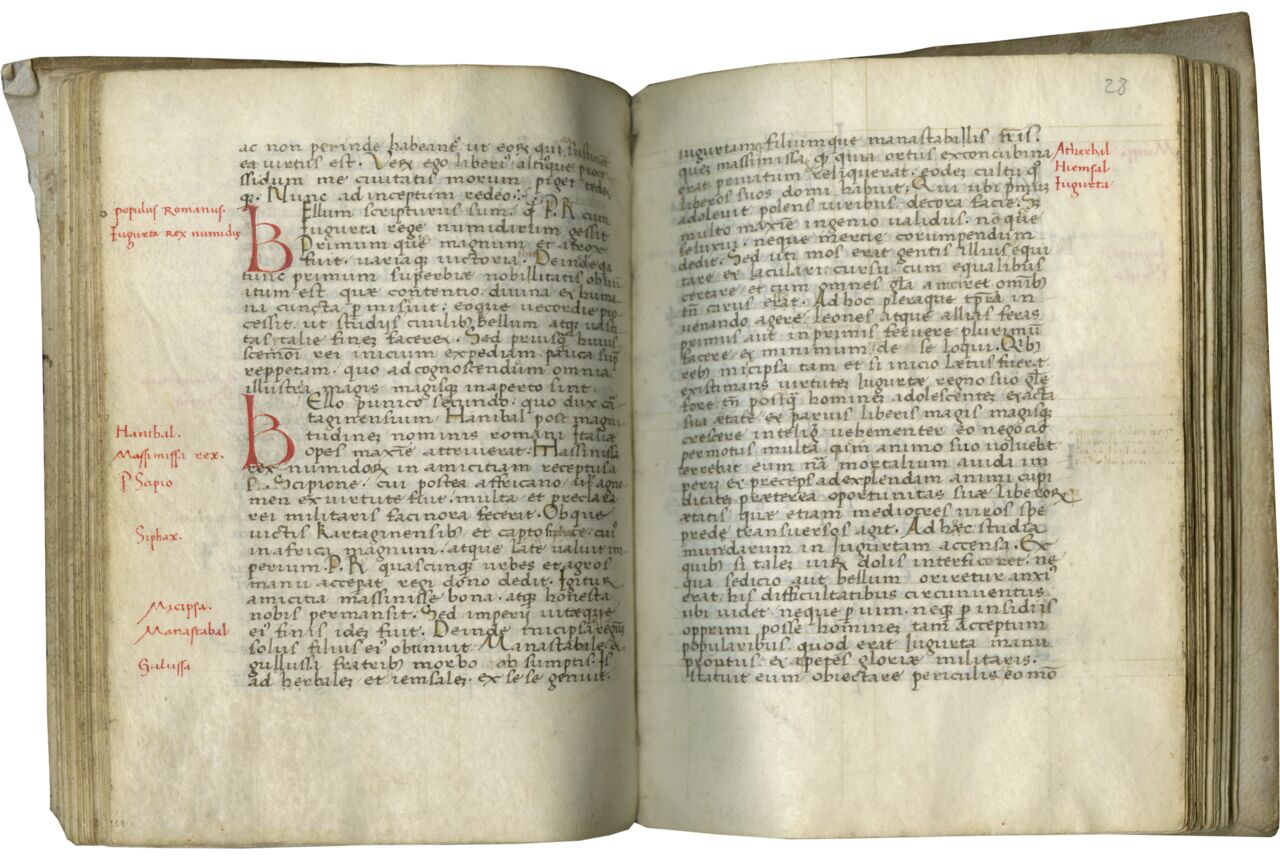 ac non perinde habeant ut eorꝝ qui iustine
ea virtus est. Verꝝ ego liberiꝰ altiꝰque proce-
ssidum me ciuitatis morum piget tedet
qꝫ. Nunc ad inceptum redeo.
populus Romanus.
Iugurta rex numidię
BEllum scripturus sum. qđ P. R cum
Iugurta rege numidarum gessit
Primum que magnum et atrox
fuit. uariaqꝫ uictoria. Deinde qa
tunc primum superbiæ nobillitatis obui
itum est. quæ contentio. diuina et huma
na cuncta ꝑmiscuit. eoque uecordie pro
cessit. ut studijs ciuilibꝫ bellum atqꝫ uasti
tas talie finez facerex. Sed priusqꝫ huius
scemōi rei inicium expediam. pauca sup̄
reppetam. quo ad cognoscendum omnia
illustra magis magisqꝫ inaperto sint.
Hanibal.
Massimissi rex.
P Scipio
BEllo punico secundo. quo dux cā-
taginensium Hanibal post magni
tudinez nominis romani Italiæ
opes maxīe attriuerat. Massinissa
rex numidorꝝ in amicitiam receptus a
P. Scipione. cui postea affricano iis agno
men ex uirtute fuit. multa et preclara
rei militaris facinora fecerat. Ob que
Siphax.
uictis Kartaginensibꝫ et capto siphace. cuiꝰ
in africa magnum. atque late ualuit im-
perium. P. R quascunqꝫ urbes et agros
manu accepat regi dono dedit. Igitur
Micipsa.
Manastabal
Gulussa
amicitia massinisse bona. atqꝫ honesta
nobis permansit. Sed imperij uitæque
eiꝰ finis idez fuit. Deinde micipsa regnuꝫ
solus filius eiꝰ obtinuit. Manastabale. et
gullussi fratribꝫ morbo ab sumptis. Is
ad herbalez et iemsalez. ex se se genuit.
28
iugurtam filiumque manastabillis fr̄is.
Atherbal
Hiemsal
Iugurta
quez massimissa. qꝫ quia ortus exconcubina
erat priuatum reliquerat. eodez cultu qꝫ
liberos suos domi habuit. Qui ubi primuꝫ
adoleuit. polens uiribus. decora facie. Sz
multo maxīe ingenio ualidus. no que
se luxui. neque inercie corumpendum
dedit. Sed uti mos erat gentis illius equi
tare et iaculari. cursu cum equalibus
certare. et cum omnes gl̄a anteiret omibꝫ
tn̄ carus erat. Ad hoc pleraque tp̄ra in
uenando agere. leones atque allias feras
primus aut inprimis feruere plurimū
facere. et minimum de se loqui. Qibꝫ
rebꝫ micipsa tam et si inicio letus fuerat
existimans uirtutez Iugurtæ regno suo gl̄e
fore. tn̄ postqꝫ hominez adolescentez exacta
sua ætate. et paruis liberis magis magisqꝫ
crescere inteliḡ. uehementer eo negocio
permotus. multa qum animo suo uoluebt
terrebat eum nā mortalium auida im
perij et preceps ad explendam animi cupi
ditatez. præterea oportunitas suæ liberorꝝ
ætatis. quæ etiam mediocres uiros spe
prede transuersos agit. Ad hæc studia
mundarum in Iugurtam accensa. Ex
quibꝫ si talez uirꝝ dolis interficeret. ne
qua sedicio aut bellum oriretur anxiꝰ
erat. his difficultatibus circunuentus
ubi uidet neque ꝑ uim. neqꝫ ꝑ insidiis
opprimi posse hominez tam acceptum
popularibus. quod erat Iugurta manu
promtus. et apetēs gloriæ militaris.
statuit eum obiectare periculis. eo mō